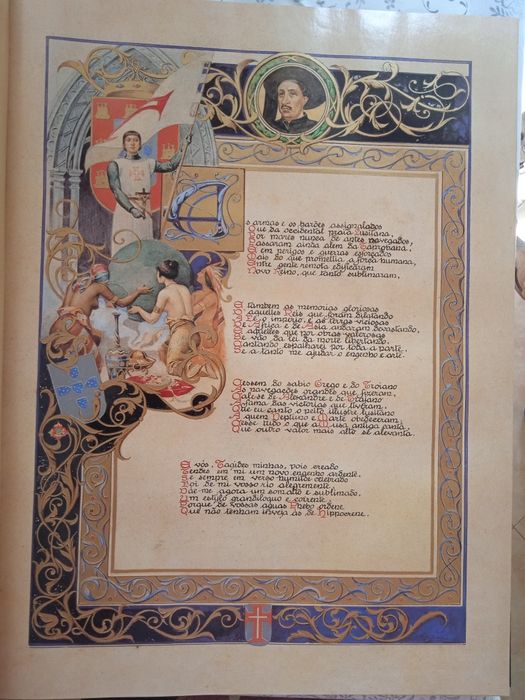 As armas e os barões assignalados
Que da occidental praia Lusitana,
Por mares nunca de antes navegados,
Passaram ainda alem da Taprobana,
Em perigos e guerras esforçados
Mais do que promettia a força humana,
Entre gente remota edificaram
Novo Reino, que tanto sublimaram,
E tambem as memorias gloriosas
D'aquelles Reis que foram dilatando
A Fé, o imperio, e as terras viciosas
De Africa e de Asia andaram devastando,
E aquelles que por obras valerosas
Se vão da lei da morte libertando.
Cantando espalharei por toda a parte,
Se a tanto me ajudar o engenho e arte.
Cessem do sabio Grego e do Troiano
As navegações grandes que fizeram,
Cale-se de Alexandre e de Trajano
A fama das victorias que tiveram,
Que eu canto o peito illustre lusitano
A quem Neptuno e Marte obedeceram,
Cesse tudo o que a Musa antiga canta,
Que outro valor mais alto se alevanta.
E vós, Tagides minhas, pois creado
Tendes em mi um novo engenho ardente,
Se sempre em verso humilde celebrado
Foi de mi vosso rio alegremente,
Dae-me agora um som alto e sublimado,
Um estylo grandiloquo e corrente,
Porque de vossas aguas Phebo ordene
Que não tenham inveja ás de Hippocrene.